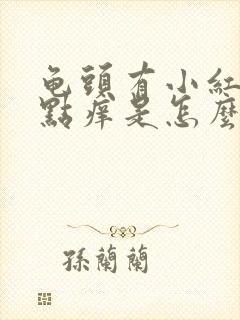 龟頭有小紅
點痒是怎麼
孫蘭蘭